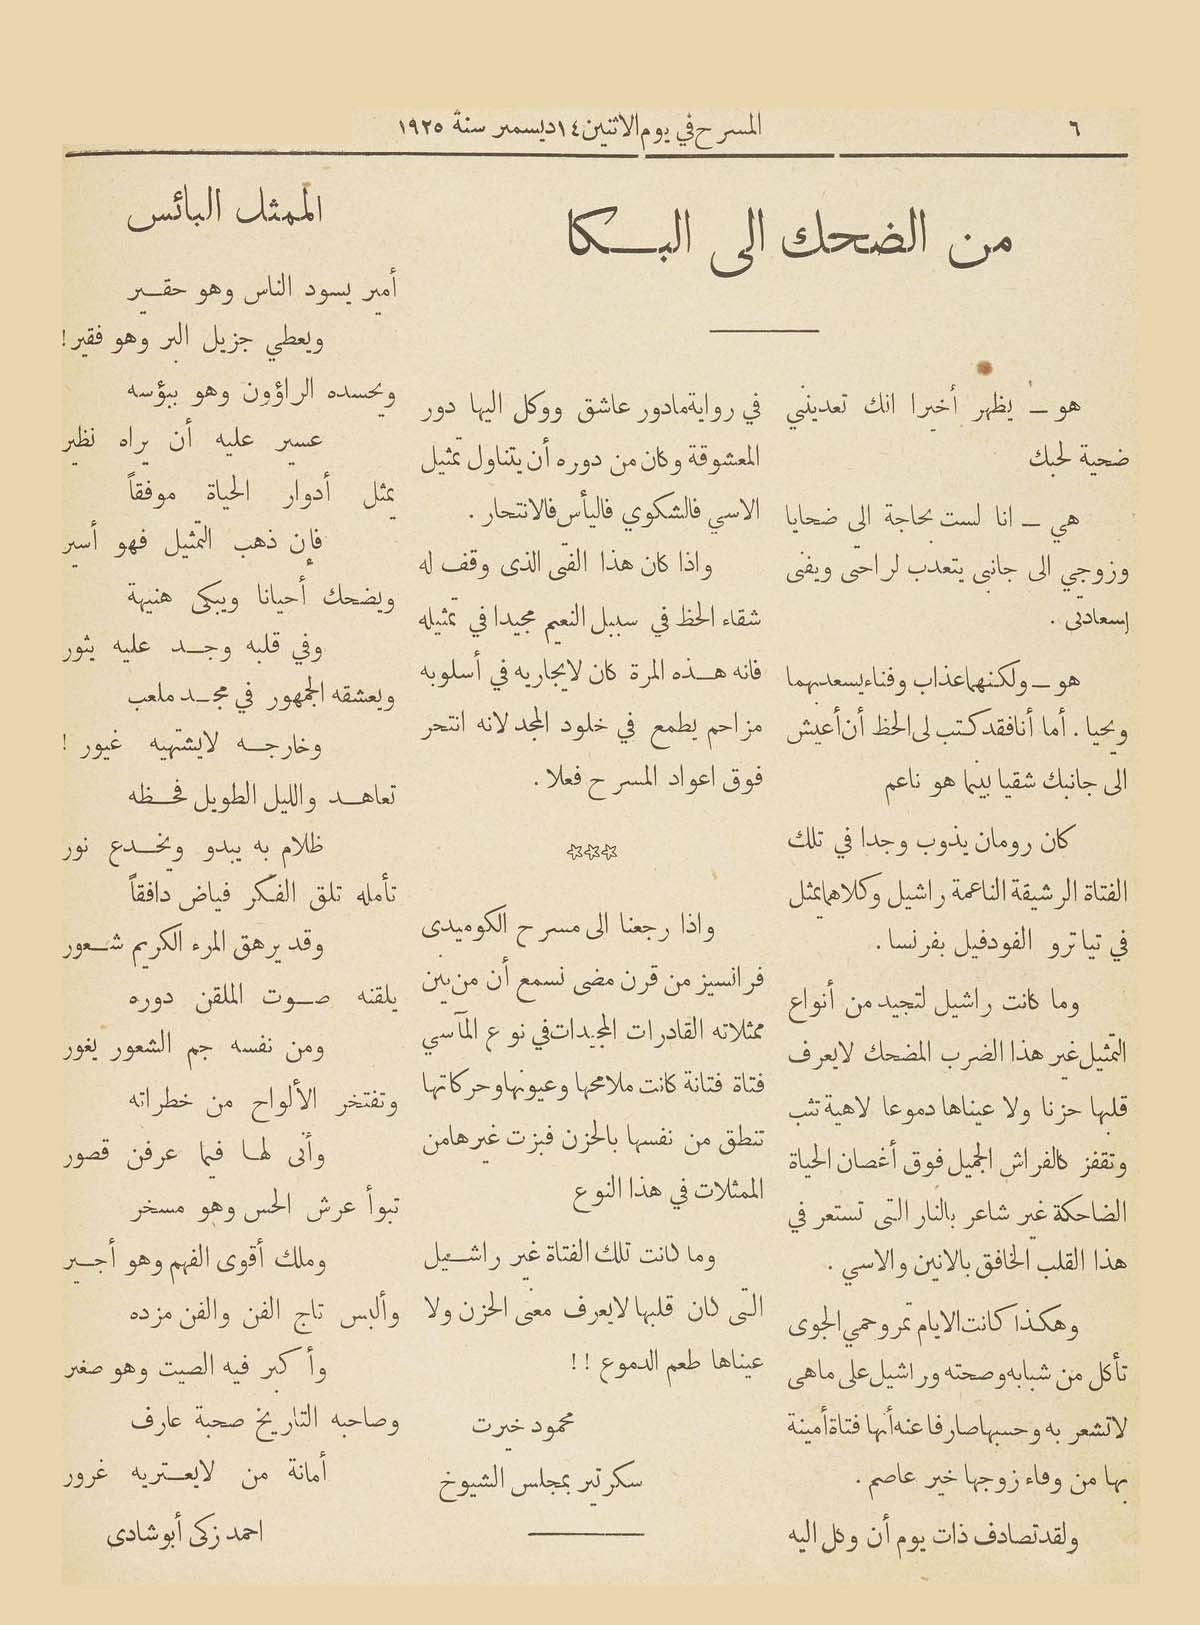 ٦
المسرح في يوم الاثنين ١٤ ديسمبر سنة ١٩٢٥
من الضحك الى البكا
هو ــ يظهر أخيرا انك تعدينني
ضحية لحبك
هي ــ انا لست بحاجة الى ضحايا
وزوجي الى جانبي يتعدب لراحتى ويفنى
إسعادتى .
هو ــ ولكنهما عذاب وفناء يسعد بهما
ويحيا . أما أنا فقد كتب لى الحظ أن أعيش
الى جانبك شقيا بينما هو ناعم
كان رومان يذوب وجدا في تلك
الفتاة الرشيقة الناعمة راشيل وكلاهما يمثل
في تياترو الفودفيل بفرنسا .
وما كانت راشيل لتجيد من أنواع
التمثيل غير هذا الضرب المضحك لايعرف
قلبها حزنا ولا عيناها دموعا لاهية تثب
وتقفز كالفراش الجميل فوق أغصان الحياة
الضاحكة غير شاعر بالنار التى تستعر في
هذا القلب الخافق بالانين والاسي .
وهكذا كانت الايام تمر وحمي الجوى
تأكل من شبابه وصحته وراشيل على ماهى
لاتشعر به وحسبها صارفا عنه أنها فتاة أمينة
بها من وفاء زوجها خير عاصم .
ولقد تصادف ذات يوم أن وكل اليه
في رواية مادور عاشق ووكل اليها دور
المعشوقة وكان من دوره أن يتناول تمثيل
الاسي فالشكوي فاليأس فالانتحار .
واذا كان هذا الفتى الذى وقف له
شقاء الحظ في سبيل النعيم مجيدا في تمثيله
فانه هـذه المرة كان لايجاريه في أسلوبه
مزاحم يطمع في خلود المجد لانه انتحر
فوق اعواد المسرح فعلا .
☆☆☆
واذا رجعنا الى مسرح الكوميدى
فرانسيز من قرن مضى نسمع أن من بين
ممثلاته القادرات المجيدات في نوع المآسي
فتاة فتانة كانت ملامحها وعيونها وحركاتها
تنطق من نفسها بالحزن فبزت غيرها من
الممثلات في هذا النوع
وما كانت تلك الفتاة غير راشيل
التى كان قلبها لايعرف معنى الحزن ولا
عيناها طعم الدموع !!
محمود خيرت
سكرتير بمجلس الشيوخ
الممثل البائس
أمير يسود الناس وهو حقير
ويعطي جزيل البر وهو فقير !
ويحسده الراؤون وهو ببؤسه
عسير عليه أن يراه نظير
يمثل أدوار الحياة موفقاً
فإن ذهب التمثيل فهو أسير
ويضحك أحيانا ويبكى هنيهة
وفي قلبه وجد عليه يثور
ويعشقه الجمهور في مجد ملعب
وخارجه لايشتهيه غيور !
تعاهد والليل الطويل فحظه
ظلام به يبدو ويخدع نور
تأمله تلق الفكر فياض دافقاً
وقد يرهق المرء الكريم شعور
يلقنه صوت الملقن دوره
ومن نفسه جم الشعور يغور
وتفتخر الألواح من خطراته
وأنى لها فيما عرفن قصور
تبوأ عرش الحس وهو مسخر
وملك أقوى الفهم وهو أجير
وألبس تاج الفن والفن مزده
وأكبر فيه الصيت وهو صغير
وصاحبه التاريخ صحبة عارف
أمانة من لايعتريه غرور
احمد زكى أبو شادى